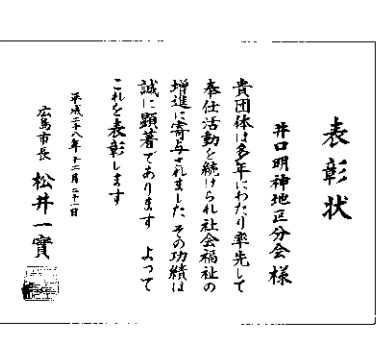 表彰状
井口明神地区分会 様
貴団体は多年にわたり率先して
奉仕活動を続けられ社会福祉の
増進に寄与されました その功績は
誠に顕著であります よって
これを表彰します
平成二十八年十二月二十一日
広島市長 松井一實